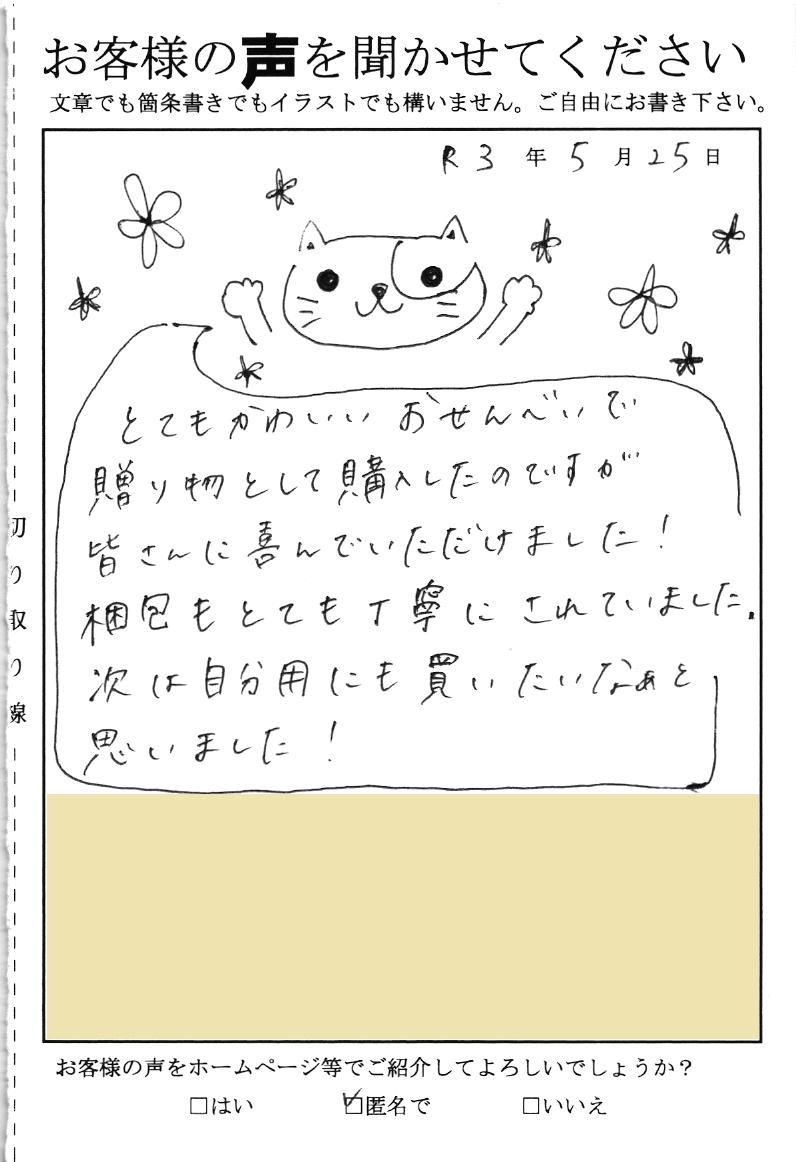 お客様の声を聞かせてください
文章でも箇条書きでもイラストでも構いません。ご自由にお書き下さい。
R3年5月25日
とてもかわいいおせんべいで
贈り物として購入したのですが
皆さんに喜んでいただけました!
梱包もとても丁寧にされていました。
次は自分用にも買いたいなぁと
思いました!
切り取り線
お客様の声をホームページ等でご紹介してよろしいでしょうか?
□はい ☑匿名で □いいえ